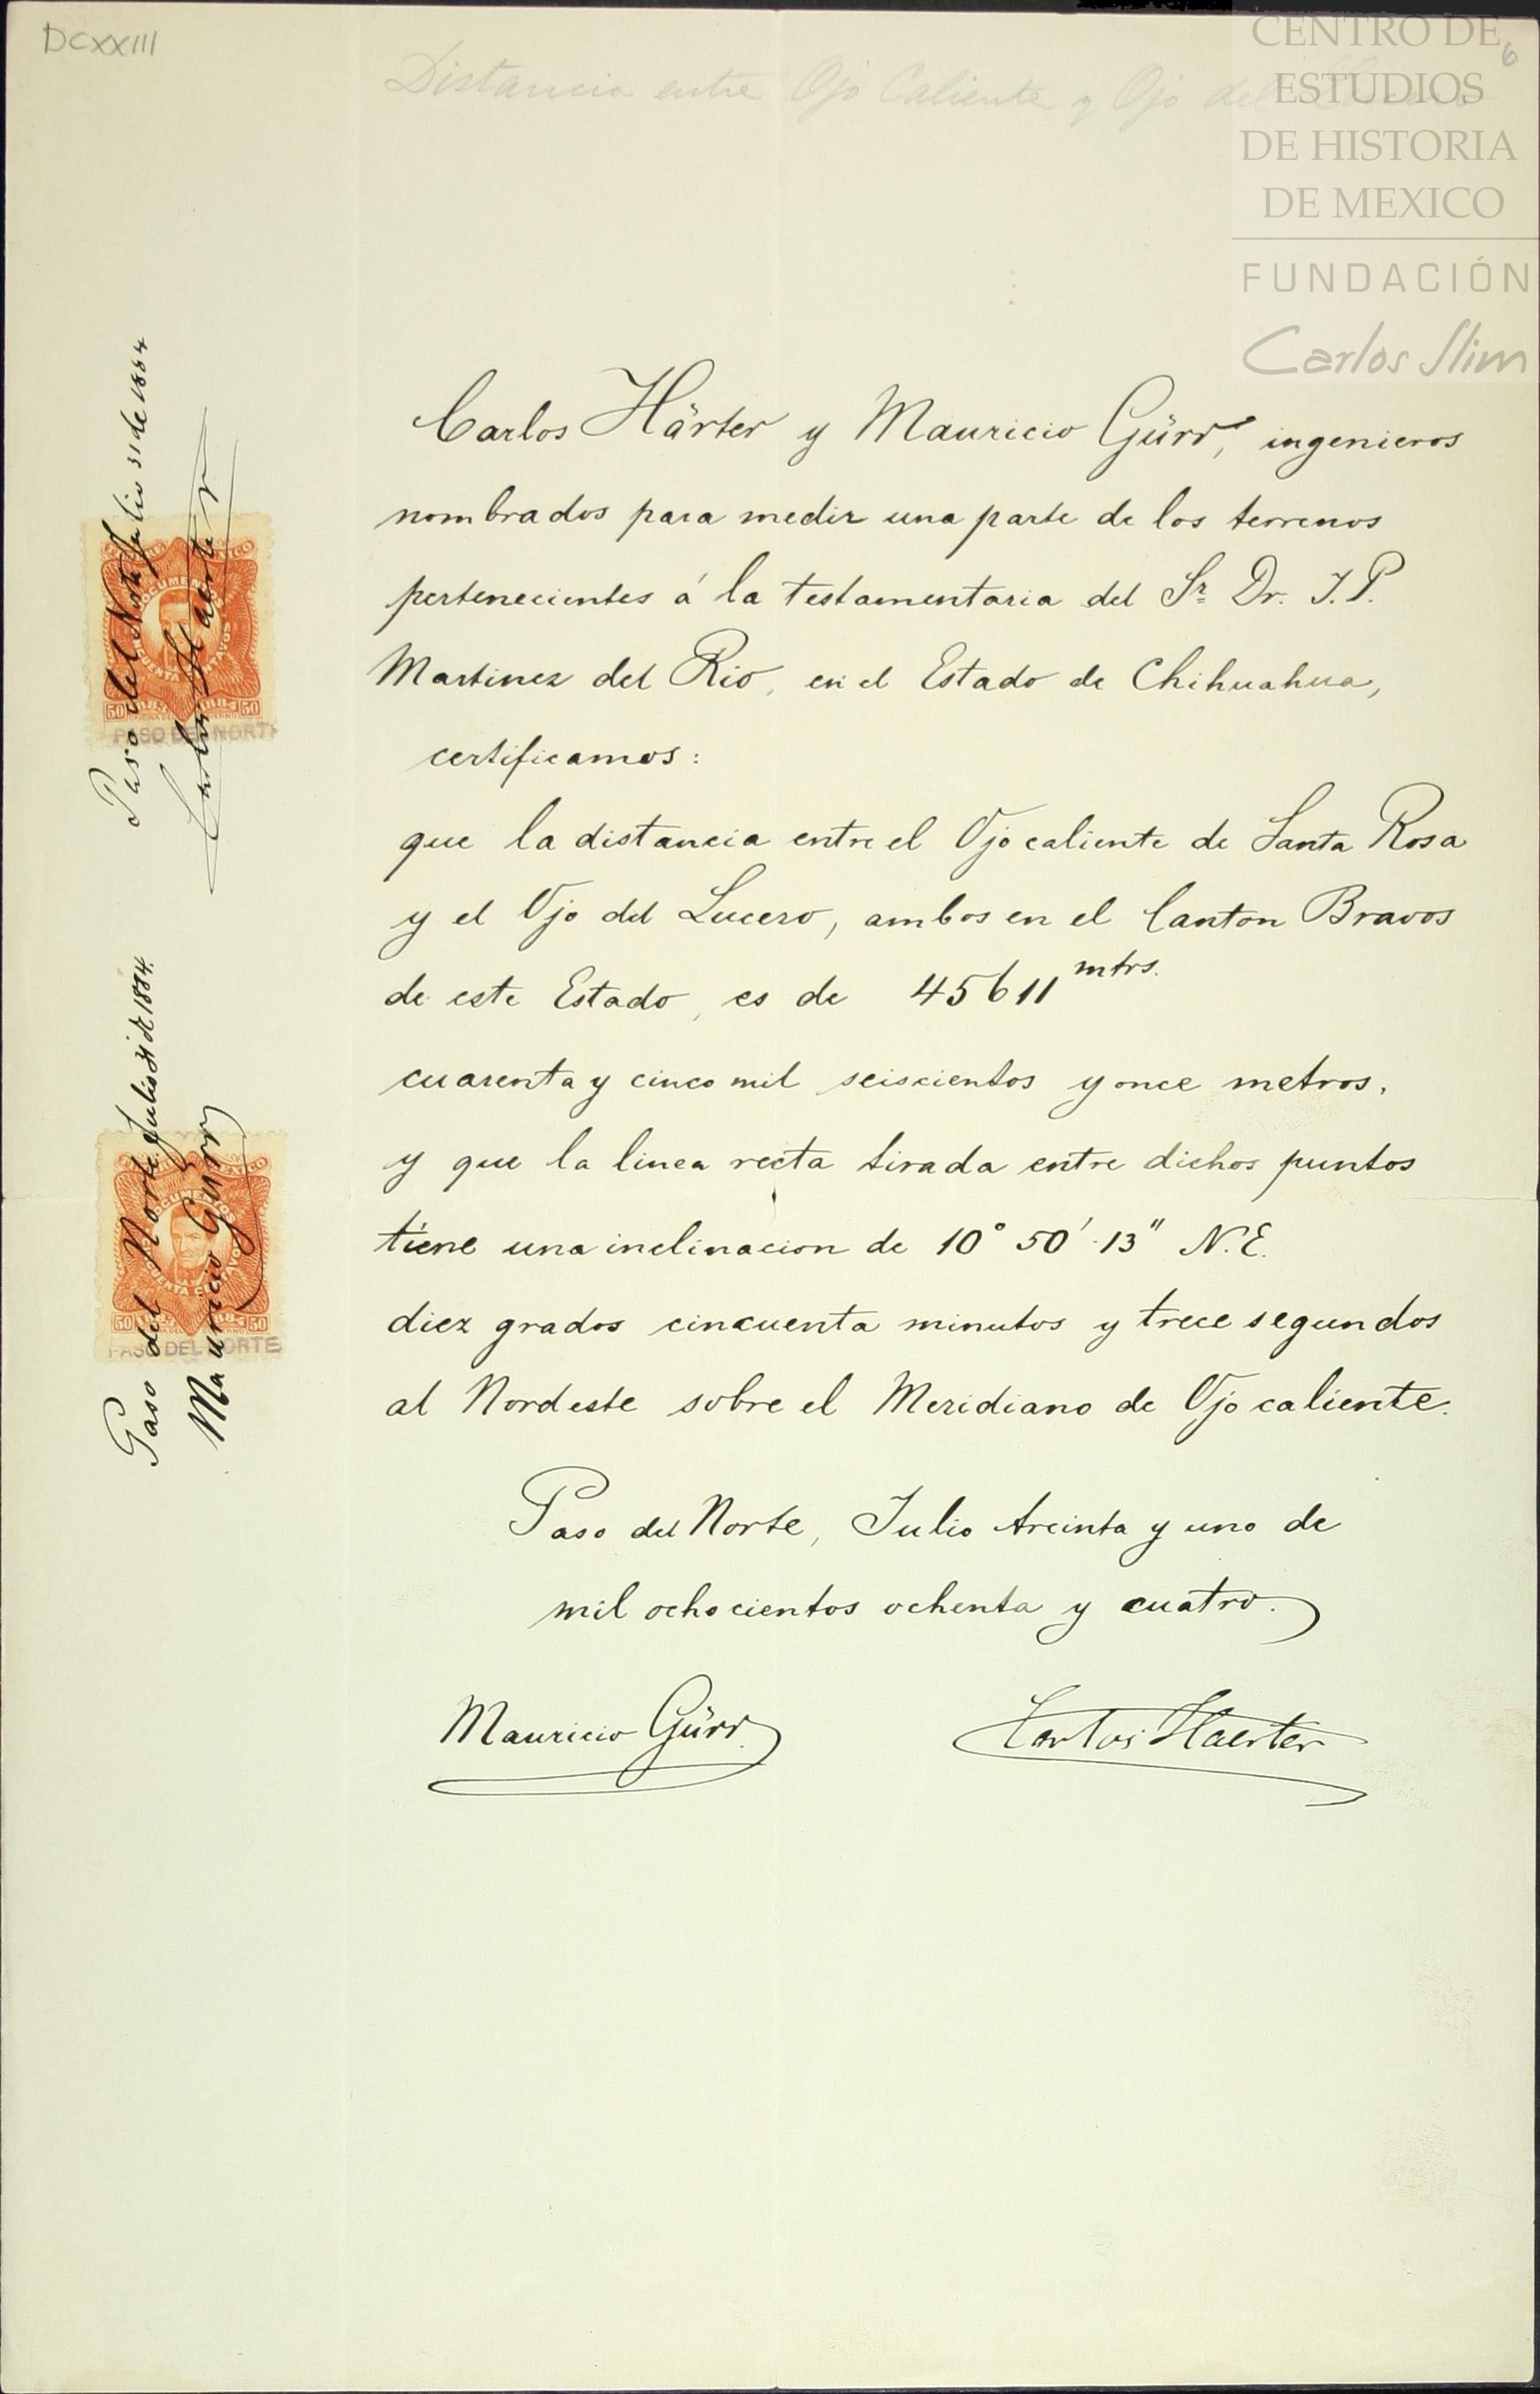 DCXXIII
6
Distancia entre Ojo Caliente y Ojo del
CENTRO DE
ESTUDIOS
DE HISTORIA
DE MEXICO
FUNDACIÓN
Carlos Slim
Carlos Härter y Mauricio Gürr, ingenieros
nombrados para medir una parte de los terrenos
pertenecientes á la testamentaria del Sr. Dr. J. P.
Martinez del Rio, en el Estado de Chihuahua,
certificamos:
que la distancia entre el Ojo caliente de Santa Rosa
y el Ojo del Lucero, ambos en el Canton Bravos
de este Estado, es de 45611 mtrs.
cuarenta y cinco mil seiscientos y once metros,
y que la linea recta tirada entre dichos puntos
tiene una inclinacion de 10° 50' 13" N.E.
diez grados cincuenta minutos y trece segundos
al Nordeste sobre el Meridiano de Ojo caliente.
Paso del Norte, Julio treinta y uno de
mil ochocientos ochenta y cuatro.
Mauricio Gürr
Carlos Haerter
Paso del Norte Julio 31 de 1884
Carlos Haerter
DOCUMEN
50 50
PASO DEL NORTE
Paso del Norte Julio 31 de 1884.
Mauricio Gürr
DOCUMENTOS
50 50
PASO DEL NORTE